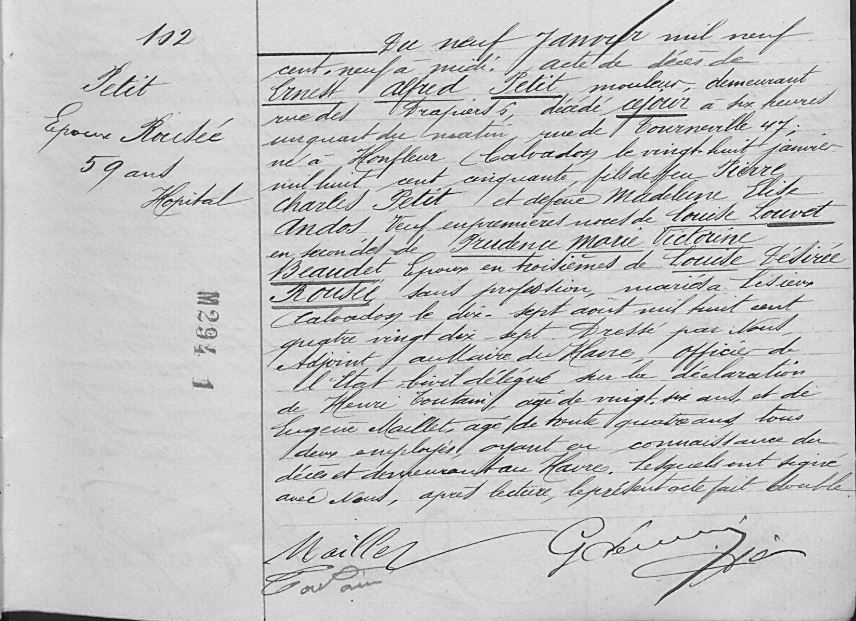 102
Petit
Epoux Rousée
59 ans
Hopital
M294 1
Du neuf Janvier mil neuf
cent neuf à midi. acte de décès de
Ernest Alfred Petit, mouleur, demeurant
rue des Drapiers 6, décédé ce jour à six heures
un quart du matin, rue de Tourneville 47;
né à Honfleur (Calvados) le vingt-huit janvier
mil huit cent cinquante fils de feu Pierre
Charles Petit et de feue Madeleine Elise
Andos Veuf en premières noces de Louise Louvet
en secondes de Prudence Marie Victorine
Beaudet Epoux en troisièmes de Louise Désirée
Rousée, sans profession, mariés à Lisieux
(Calvados) le dix-sept août mil huit cent
quatre vingt dix-sept. Dressé par Nous
Adjoint au Maire du Havre officier de
l'Etat-Civil délégué sur la déclaration
de Henri Toutain, agé de vingt six ans, et de
Eugène Maillet, agé de trente quatre ans, tous
deux employés, ayant eu connaissance du
décès et demeurant au Havre, lesquels ont signé
avec Nous, après lecture, le présent acte fait double.
Maillet
Toutain